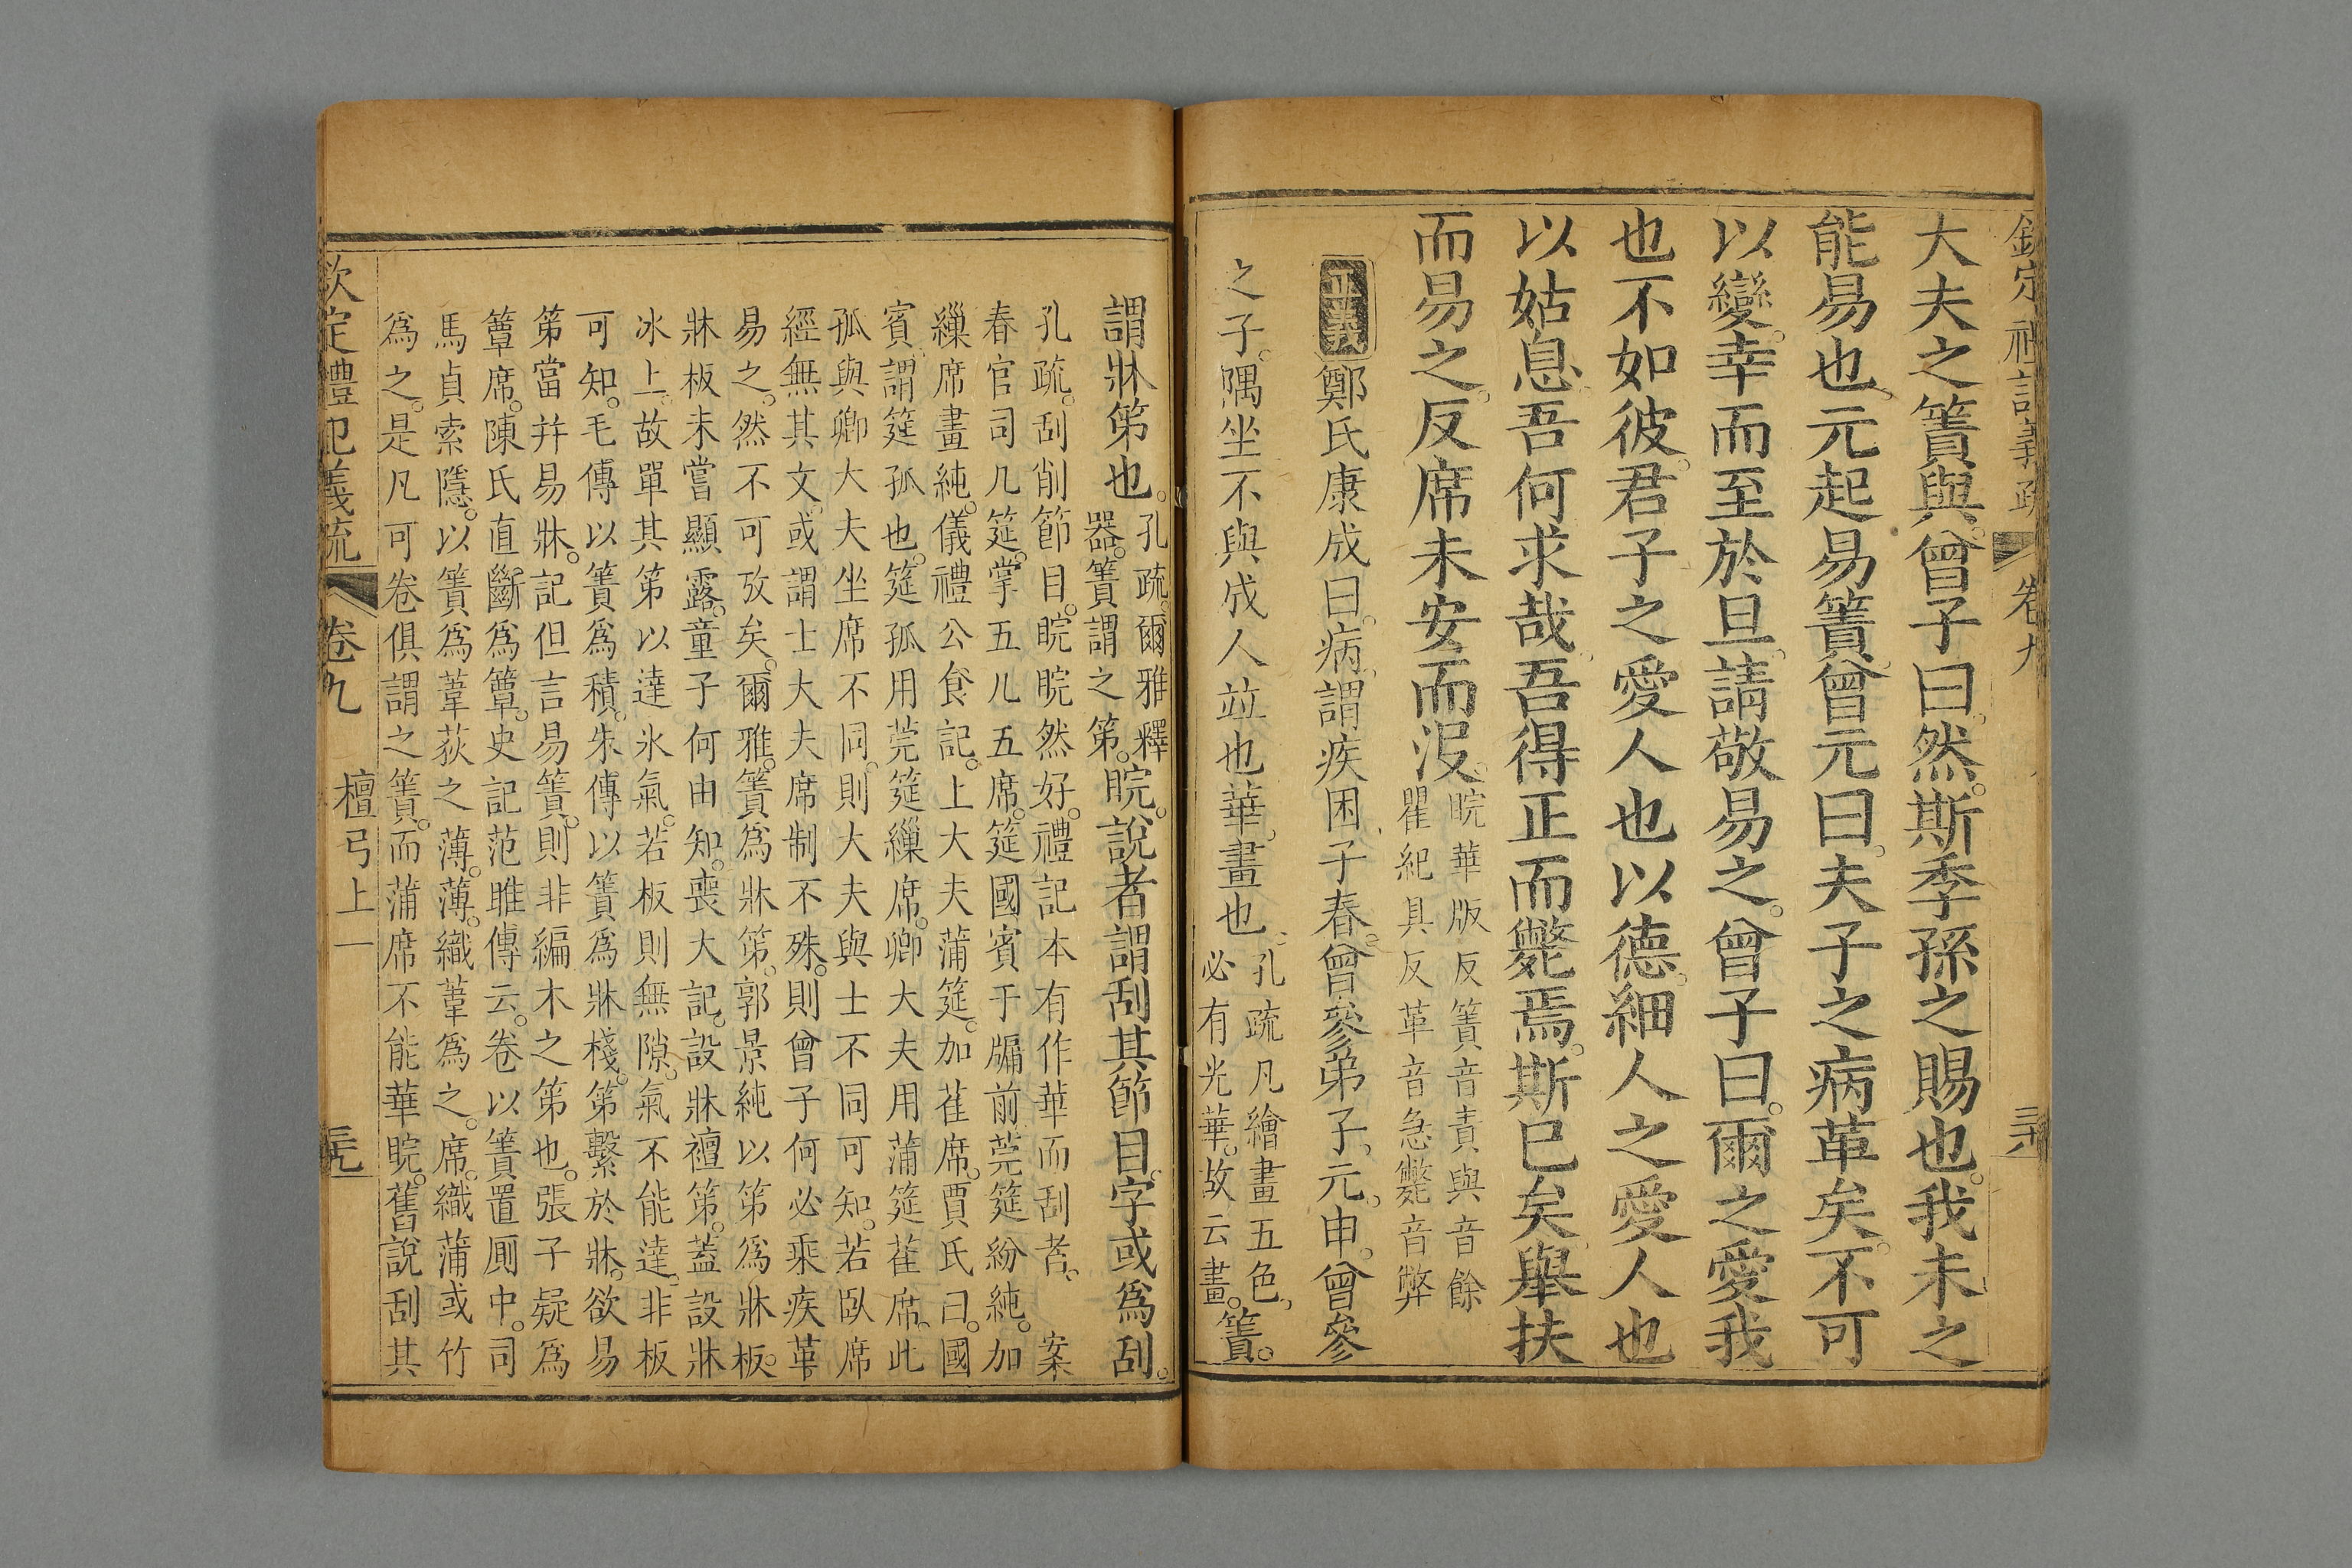 欽定禮記義疏 卷九 三六
大夫之簀與。曾子曰。然。斯季孫之賜也。我未之
能易也。元起易簀。曾元曰。夫子之病革矣。不可
以變。幸而至於旦。請敬易之。曾子曰。爾之愛我
也不如彼。君子之愛人也以德。細人之愛人也
以姑息。吾何求哉。吾得正而斃焉。斯已矣。舉扶
而易之。反席未安而沒。
睆華版反簀音責與音餘
瞿紀具反革音急斃音弊
正義鄭氏康成曰。病。謂疾困。子春。曾參弟子。元。申。曾參
之子。隅坐不與成人竝也。華。畫也。
孔疏凡繪畫五色。
必有光華。故云畫。
簀。
謂牀笫也。
孔疏。爾雅釋
器。簀謂之笫。
睆。說者謂刮其節目。字或爲刮。
孔疏。刮削節目。睆睆然好。禮記本有作華而刮者。 案
春官司几筵。掌五几五席。筵國賓于牖前莞筵紛純。加
繅席畫純。儀禮公食記。上大夫蒲筵。加萑席。賈氏曰。國
賓。謂筵孤也。筵孤用莞筵繅席。卿大夫用蒲筵萑席。此
孤與卿大夫坐席不同。則大夫與士不同可知。若臥席
經無其文。或謂士大夫席制不殊。則曾子何必乘疾革
易之。然不可攷矣。爾雅。簀爲牀笫。郭景純以笫爲牀板。
牀板未嘗顯露。童子何由知。喪大記。設牀襢笫。蓋設牀
冰上。故單其笫以達氷氣。若板則無隙。氣不能達。非板
可知。毛傳以簀爲積。朱傳以簀爲牀棧。笫繫於牀。欲易
笫當并易牀。記但言易簀。則非編木之笫也。張子疑爲
簟席。陳氏直斷爲簟。史記范雎傳云。卷以簀置厠中。司
馬貞索隱。以簀爲葦荻之薄。薄。織葦爲之。席。織蒲或竹
爲之。是凡可卷俱謂之簀。而蒲席不能華睆。舊說刮其
欽定禮記義疏 卷九 檀弓上一 三九